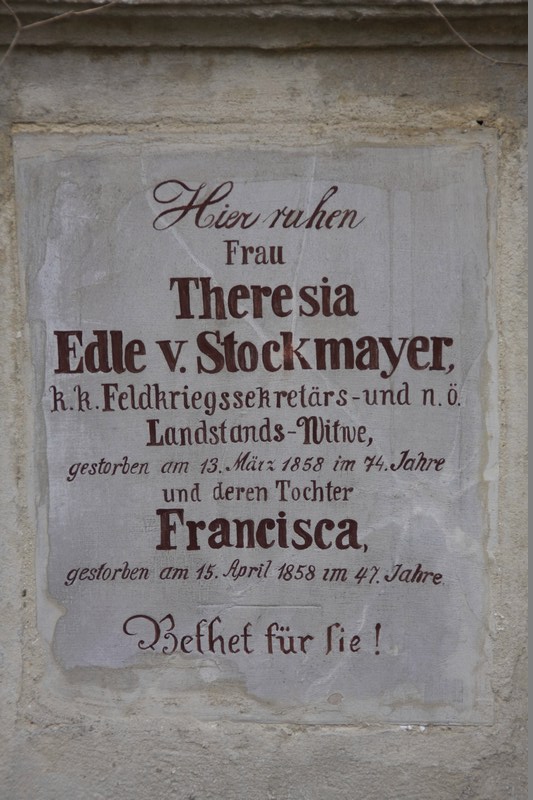 Hier ruhen
Frau
Theresia
Edle v. Stockmayer,
k.k. Feldkriegssekretärs-und n. ö.
Landstands-Witwe,
gestorben am 13. März 1858 im 74. Jahre
und deren Tochter
Francisca,
gestorben am 15. April 1858 im 47. Jahre
Bethet für sie!